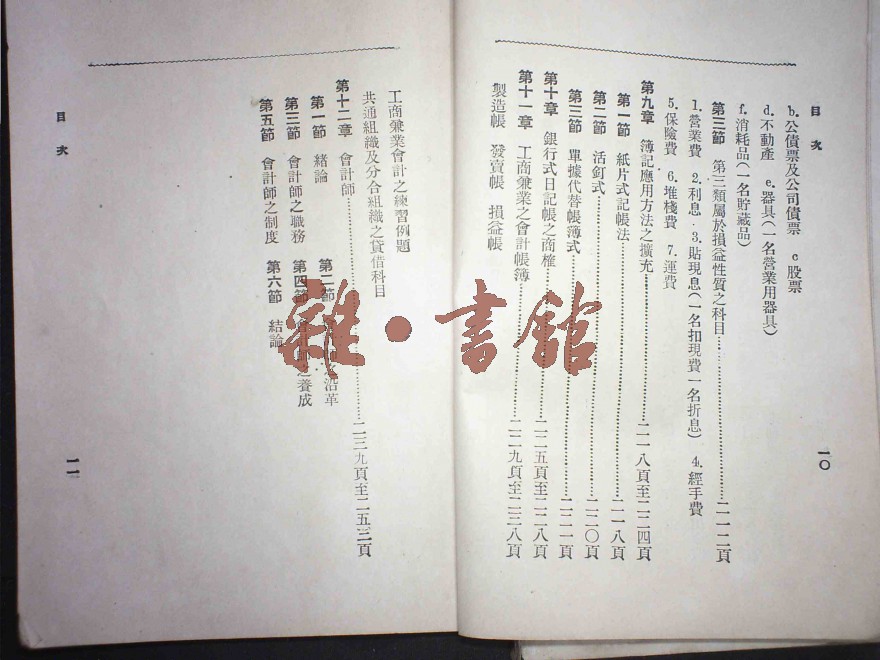 目次
一〇
b.公債票及公司債票 c股票
d.不動產 e.器具(一名營業用器具)
f.消耗品(一名貯藏品)
第三節 第三類屬於損益性質之科目……二一二頁
1.營業費 2.利息 3.貼現息(一名扣現費一名折息) 4.經手費
5.保險費 6.堆棧費 7.運費
第九章 簿記應用方法之擴充……二一八頁至二二四頁
第一節 紙片式記帳法……二一八頁
第二節 活釘式……二二〇頁
第三節 單據代替帳簿式……二二一頁
第十章 銀行式日記帳之商榷……二二五頁至二二八頁
第十一章 工商兼業之會計帳簿……二二九頁至二三八頁
製造帳 發賣帳 損益帳
工商兼業會計之練習例題
共通組織及分合組織之貸借科目
第十二章 會計師……二三九頁至二五三頁
第一節 緒論 第二節 沿革
第三節 會計師之職務 第四節 會計師之養成
第五節 會計師之制度 第六節 結論
目次
一一
雜·書館